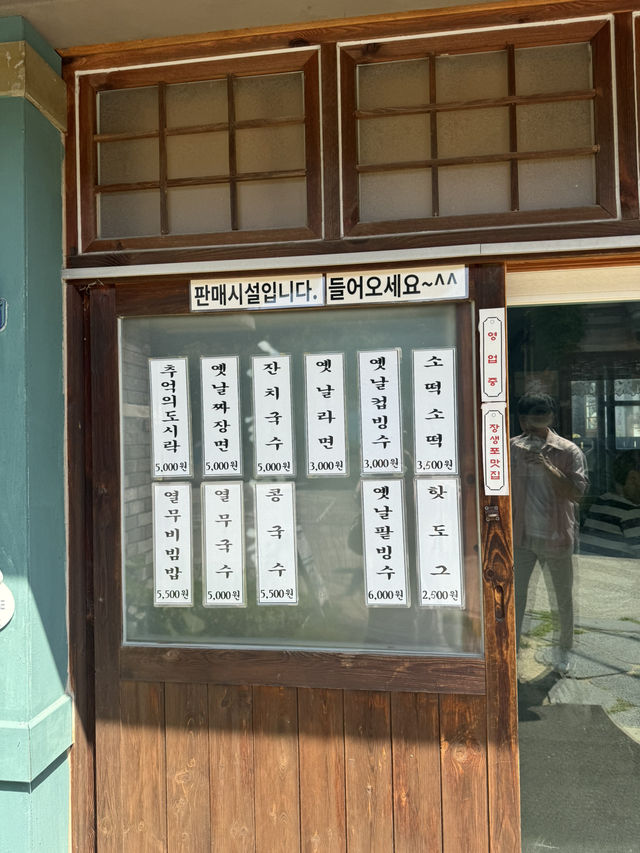 판매시설입니다. 들어오세요~^^
추억의도시락 5,000원
옛날짜장면 5,000원
잔치국수 5,000원
옛날라면 3,000원
옛날컵빙수 3,000원
소떡소떡 3,500원
열무비빔밥 5,500원
열무국수 5,000원
콩국수 5,500원
옛날팥빙수 6,000원
핫도그 2,500원
영업중
장생포맛집